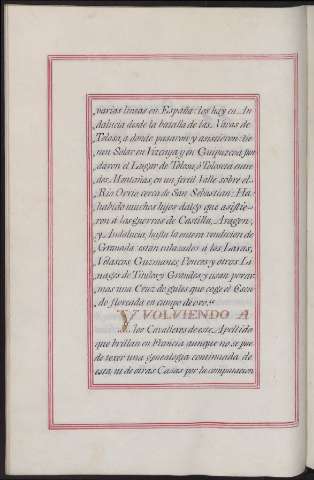 varias lineas en España: los hay en An
dalucia desde la batalla de las Navas de
Tolosa, a donde pasaron y asistieron: tie
nen Solar en Vizcaya, y en Guipuzcoa fun
daron el Lugar de Tolosa, ó Tolosета entre
dos Montañas, en un fertil Valle sobre el
Rio Orrio cerca de San Sebastian: Ha
habido muchos hijos dalgo que asistie-
ron á las guerras de Castilla, Aragon,
y Andalucia, hasta la misma rendicion de
Granada: estan enlazados a los Laras,
Velascos, Guzmanes, Ponces y otros Li
nages de Titulos y Grandes, y usan por ar
mas una Cruz de gules que coge el Escu
do floreada en campo de oro.
Y VOLVIENDO A
los Cavalleros de este Apellido
que brillan en Francia, aunque no se pue
de texer una genealogia continuada de
esta, ni de otras Casas por la computacion